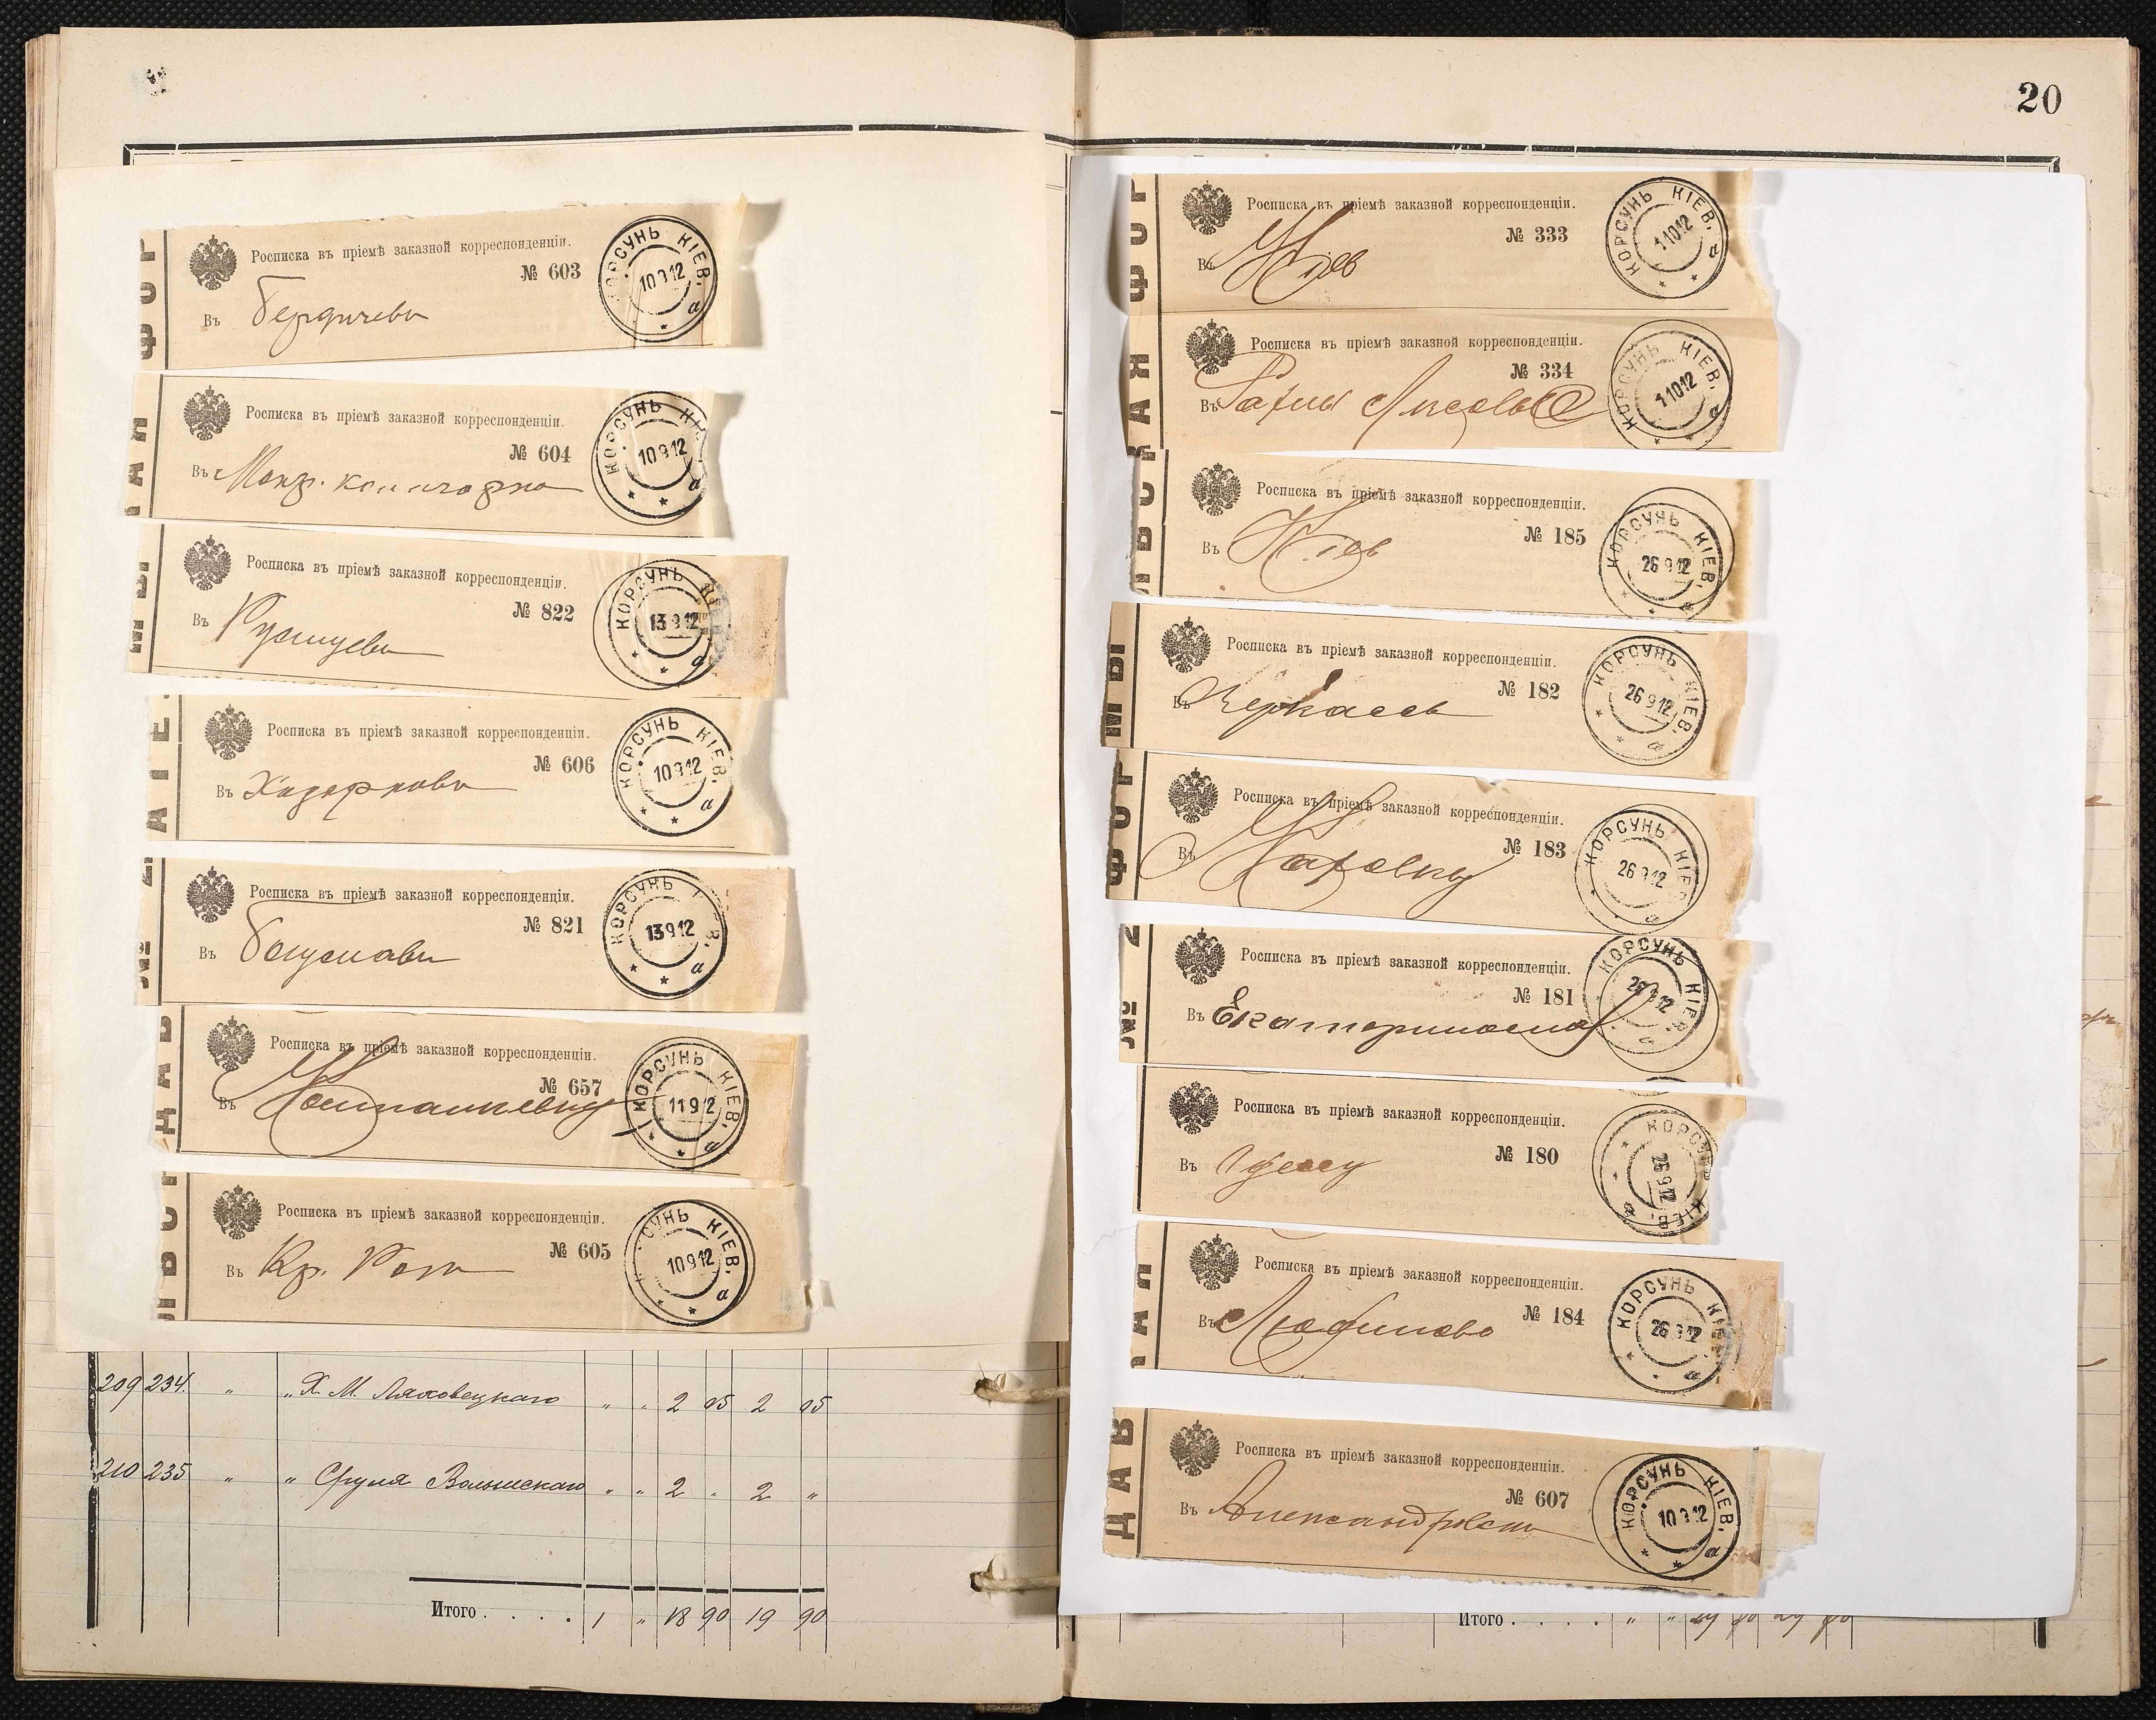 Росписка въ пріемѣ заказной корреспонденціи.
№ 603
Въ Бердичевъ
КОРСУНЬ КІЕВ. а
10 9 12
Росписка въ пріемѣ заказной корреспонденціи.
№ 604
Въ Мокр.
КОРСУНЬ КІЕ а
10 9 12
Росписка въ пріемѣ заказной корреспонденціи.
№ 822
Въ
КОРСУНЬ
13 9 12
Росписка въ пріемѣ заказной корреспонденціи.
№ 606
Въ Ходорковъ
КОРСУНЬ КІЕВ. а
10 9 12
Росписка въ пріемѣ заказной корреспонденціи.
№ 821
Въ Богуславъ
КОРСУНЬ а
13 9 12
Росписка въ пріемѣ заказной корреспонденціи.
№ 657
Въ
КОРСУНЬ КІЕВ. а
11 9 12
Росписка въ пріемѣ заказной корреспонденціи.
№ 605
Въ Кр. Рогъ
СУНЬ КІЕВ. а
10 9 12
209 234. " " Х. М. Ляховецкаго " " 2 05 2 05
210 235 " " Сруля " " 2 " 2 "
Итого . . . . 1 " 18 90 19 90
20
Росписка въ пріемѣ заказной корреспонденціи.
№ 333
Въ Кіев
КОРСУНЬ КІЕВ. а
1 10 12
Росписка въ пріемѣ заказной корреспонденціи.
№ 334
Въ
КОРСУНЬ КІЕВ. а
1 10 12
Росписка въ пріемѣ заказной корреспонденціи.
№ 185
Въ Кіев
КОРСУНЬ КІЕВ. а
26 9 12
Росписка въ пріемѣ заказной корреспонденціи.
№ 182
Въ Черкассы
КОРСУНЬ КІЕВ. а
26 9 12
Росписка въ пріемѣ заказной корреспонденціи.
№ 183
Въ
КОРСУНЬ КІЕВ а
26 9 12
Росписка въ пріемѣ заказной корреспонденціи.
№ 181
Въ Екатеринослав
КОРСУНЬ КІЕВ. а
26 9 12
Росписка въ пріемѣ заказной корреспонденціи.
№ 180
Въ Одессу
КОРСУНЬ КІЕВ. а
26 9 12
Росписка въ пріемѣ заказной корреспонденціи.
№ 184
Въ
КОРСУНЬ а
26 9 12
Росписка въ пріемѣ заказной корреспонденціи.
№ 607
Въ Александровскъ
КОРСУНЬ КІЕВ. а
10 9 12
Итого . . . .